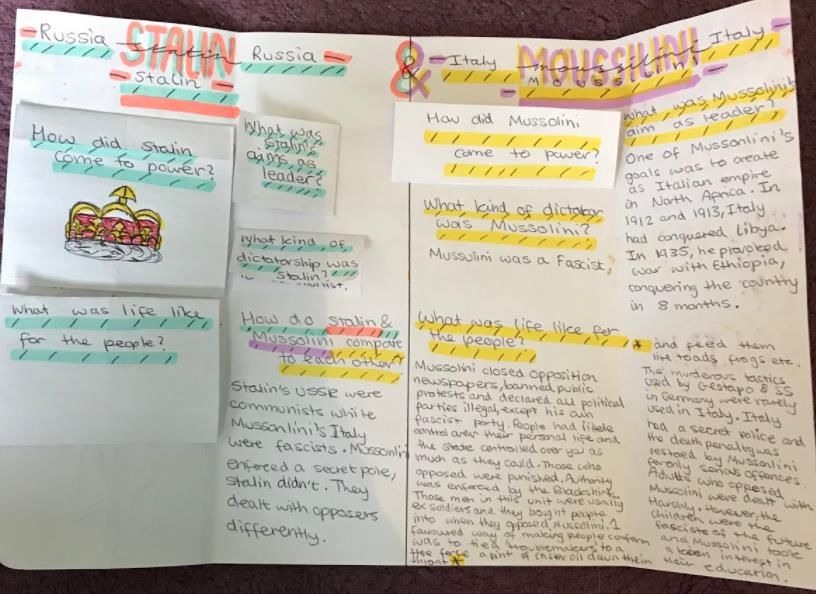 Russia
Stalin
STALIN
Russia
Stalin
&
Italy
MOUSSILINI
Italy
How did Stalin
come to power?
What was
Stalin's
aims as
leader?
What kind of
dictatorship was
Stalin?
What was life like
for the people?
How do Stalin &
Mussolini compare
to each other?
Stalin's USSR were
communists while
Mussonlini's Italy
were fascists. Mussonlini
enforced a secret police,
Stalin didn't. They
dealt with opposers
differently.
How did Mussolini
come to power?
What kind of dictator
was Mussolini?
Mussulini was a Fascist.
What was life like for
the people?
Mussolini closed opposition
newspapers, banned public
protests and declared all political
parties illegal, except his own
fascist party. People had little
control over their personal life and
the state controlled over you as
much as they could. Those who
opposed were punished. Authority
was enforced by the Blackshirts.
Those men in this unit were usually
ex soldiers and they bought people
into when they opposed Mussolini. 1
favoured way of making people conform
was to tied troublemakers to a
tree force a pint of caster oil down their
throat *
What was Mussolini's
aim as leader?
One of Mussonlini's
goals was to create
as Italian empire
in North Africa. In
1912 and 1913, Italy
had conquered Libya.
In 1935, he provoked
war with Ethiopia,
conquering the country
in 8 months.
* and feed them
live toads frogs etc.
The murderous tactics
used by Gestapo & SS
in Germany were rarely
used in Italy. Italy
had a secret police and
the death penalty was
restored by Mussonlini
for only serious offences.
Adults who opposed
Mussolini were dealt with
Harshly. However, the
children were the
fascists of the future
and Mussolini took
a keen interest in
their education.